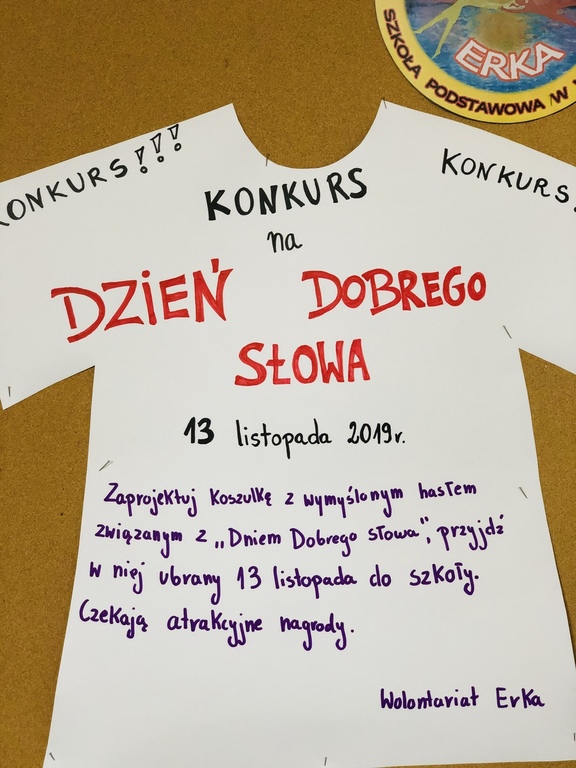 ERKA
SZKOŁA PODSTAWOWA W
KONKURS!!!
KONKURS!
KONKURS
na
DZIEŃ DOBREGO
SŁOWA
13 listopada 2019r.
Zaprojektuj koszulkę z wymyślonym hasłem
związanym z „Dniem Dobrego słowa”, przyjdź
w niej ubrany 13 listopada do szkoły.
Czekają atrakcyjne nagrody.
Wolontariat Erka